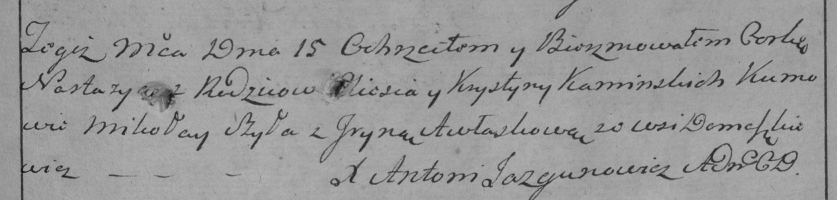 Tegiż Mca Dnia 15 Ochrzciłem y Bierzmowałem Corkę
Nastazyą z Rodzicow Eliesia y Krystyny Kaminskich Kumo
wie Mikołay Szyła z Jryną Awłaskową ze wsi Domaszkie
wicz — — — X Antoni Jazgunowicz